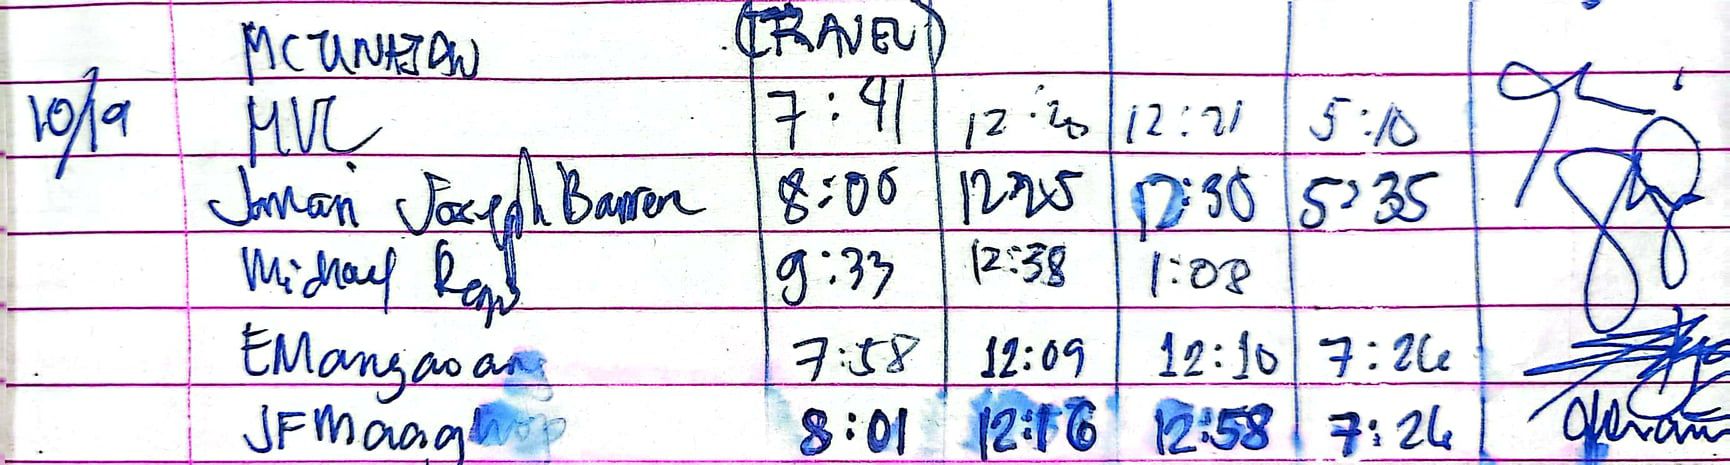 MCUNAJAN (TRAVEL)
10/19 MVL 7:41 12:20 12:21 5:10
Jomari Joseph Barrera 8:00 12:25 12:30 5:35
Michael 9:33 12:38 1:08
EMangaoang 7:58 12:09 12:10 7:26
JFMaag 8:01 12:16 12:58 7:26